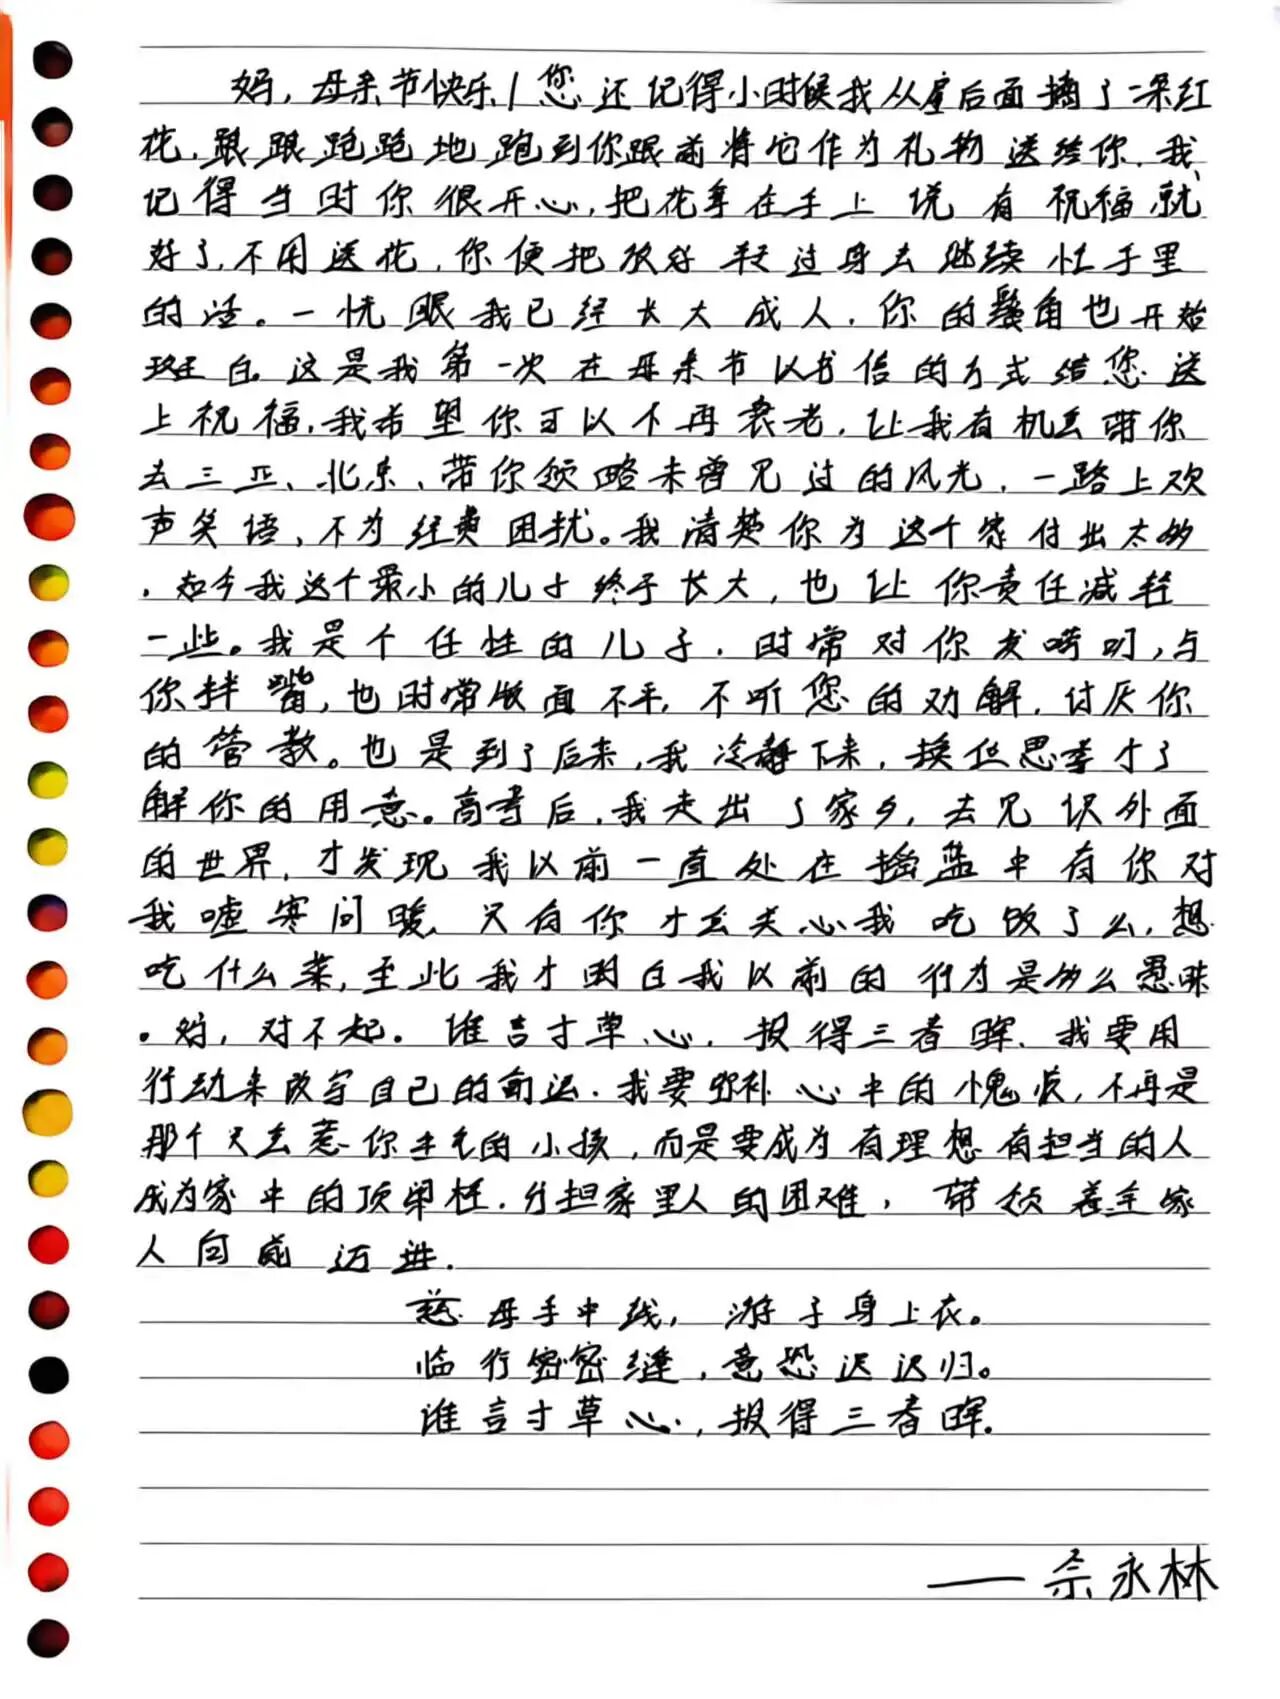 妈，母亲节快乐！您还记得小时候我从屋后面摘了一朵红
花，跟跟跑跑地跑到你跟前将它作为礼物送给你，我
记得当时你很开心，把花拿在手上说有祝福就
好了，不用送花，你便把放好转过身去继续忙手里
的活。一恍眼我已经长大成人，你的鬓角也开始
斑白。这是我第一次在母亲节以书信的方式给您送
上祝福，我希望你可以不再衰老，让我有机会带你
去三亚、北京、带你领略未曾见过的风光，一路上欢
声笑语、不为经费困扰。我清楚你为这个家付出太多
，如今我这个最小的儿子终于长大，也让你责任减轻
一些。我是个任性的儿子，时常对你发唠叨，与
你拌嘴，也时常版面不平，不听您的劝解，讨厌你
的管教。也是到了后来，我冷静下来，换位思考才了
解你的用意。高考后，我走出了家乡，去见识外面
的世界，才发现我以前一直处在摇蓝中有你对
我嘘寒问暖，只有你才会关心我吃饭了么，想
吃什么菜，至此我才明白我以前的行为是多么愚昧
。妈，对不起。谁言寸草心，报得三春晖、我要用
行动来改写自己的命运，我要弥补心中的愧疚，不再是
那个只会惹你生气的小孩，而是要成为有理想有担当的人
成为家中的顶梁柱，分担家里人的困难，带领着全家
人向前迈进．
慈母手中线，游子身上衣。
临行密密缝，意恐迟迟归。
谁言寸草心，报得三春晖．
——佘永林